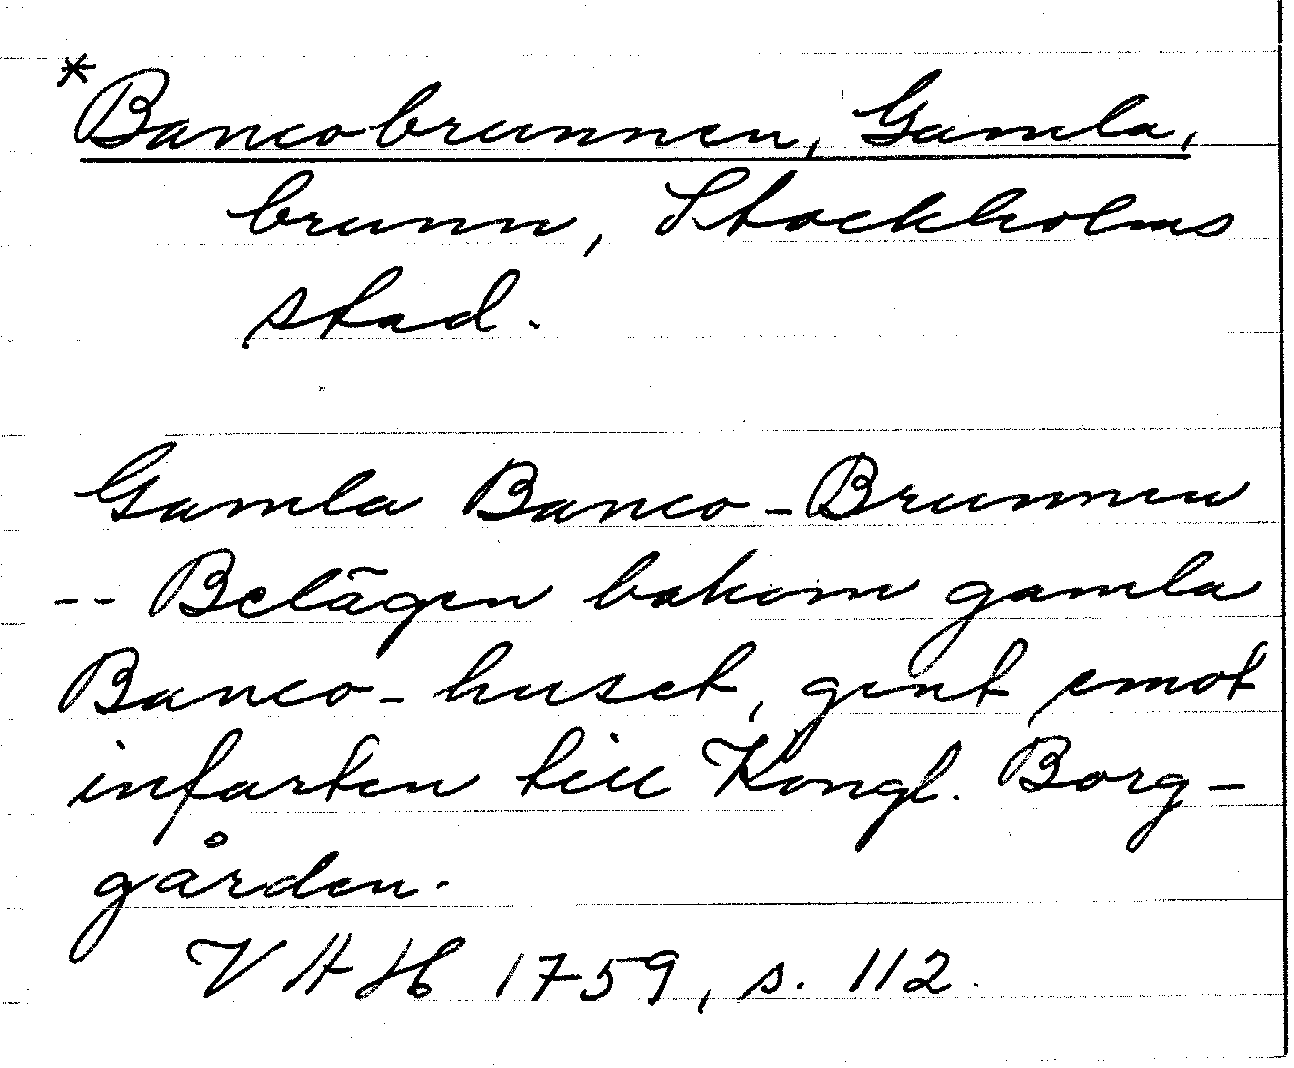 *Bancobrunnen, Gamla,
brunn, Stockholms
stad.
Gamla Banco-Brunnen
-- Belägen bakom gamla
Banco-huset, gent emot
infarten till Kongl. Borg-
gården.
VAH 1759, s. 112.